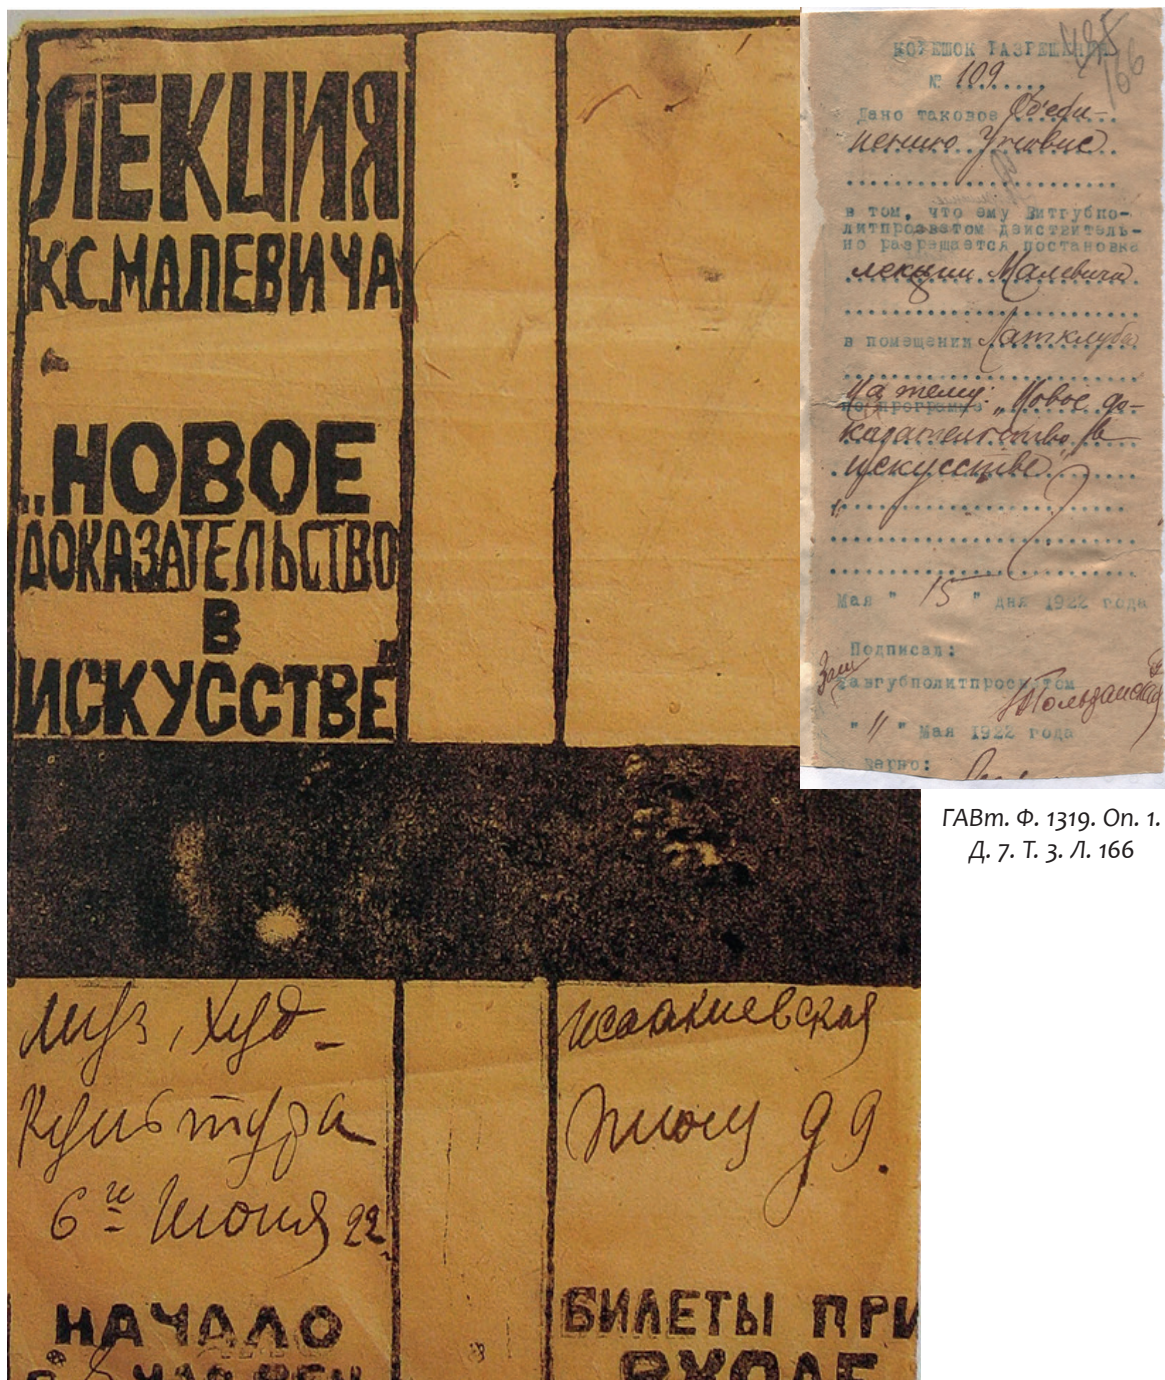 ЛЕКЦИЯ
КС.МАЛЕВИЧА
„НОВОЕ
ДОКАЗАТЕЛЬСТВО
В
ИСКУССТВЕ"
Муз, Худ-
Культура
6го Июня 22
НАЧАЛО
8 ЧАС ВЕЧ
Исаакиевская
площ д 9.
БИЛЕТЫ ПРИ
ВХОДЕ
КОРЕШОК РАЗРЕШЕНИЯ
166
№ 109
Дано таковое Объеди-
нению Уновис
в том, что ему Витгубпо-
литпросветом действитель-
но разрешается постановка
лекции Малевича
в помещении Латклуба
На тему: „Новое до-
по программе
казательство в
искусстве"
Мая " 15 " дня 1922 года
Подписал:
Зам
Завгубполитпросветом
" 11 " Мая 1922 года
Верно:
ГАВт. Ф. 1319. Оп. 1.
Д. 7. Т. 3. Л. 166